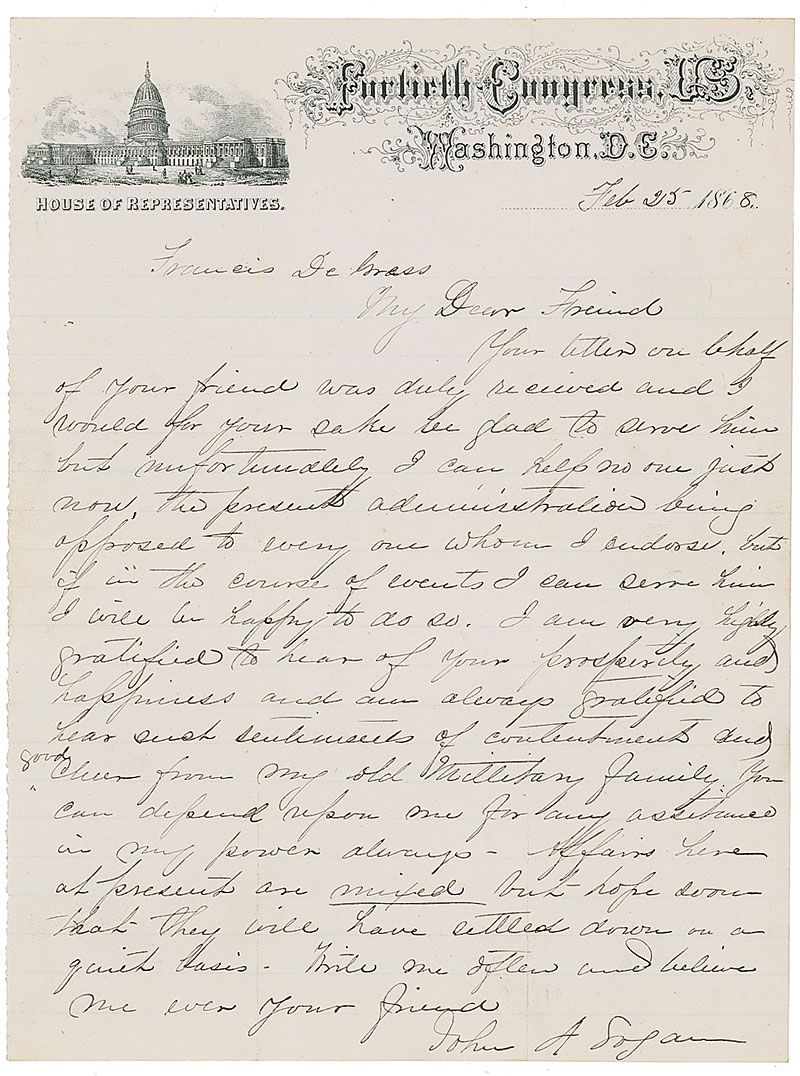 Fortieth Congress, U.S.
Washington, D.C.
HOUSE OF REPRESENTATIVES.
Feb 25 1868.
Francis De Grass
My Dear Freind
Your letter on behalf
of your friend was duly received and I
would for your sake be glad to serve him
but unfortunately I can help no one just
now, the present administration being
opposed to every one whom I endorse. but
if in the course of events I can serve him
I will be happy to do so. I am very highly
gratified to hear of your prosperity and
happiness and am always gratified to
hear such sentiments of contentment and
good
cheer from my old Millitary family. You
can depend upon me for any assitance
in my power always - Affairs here
at present are mixed but hope soon
that they will have settled down on a
quiet basis - Write me often and believe
me ever your friend
John A Logan